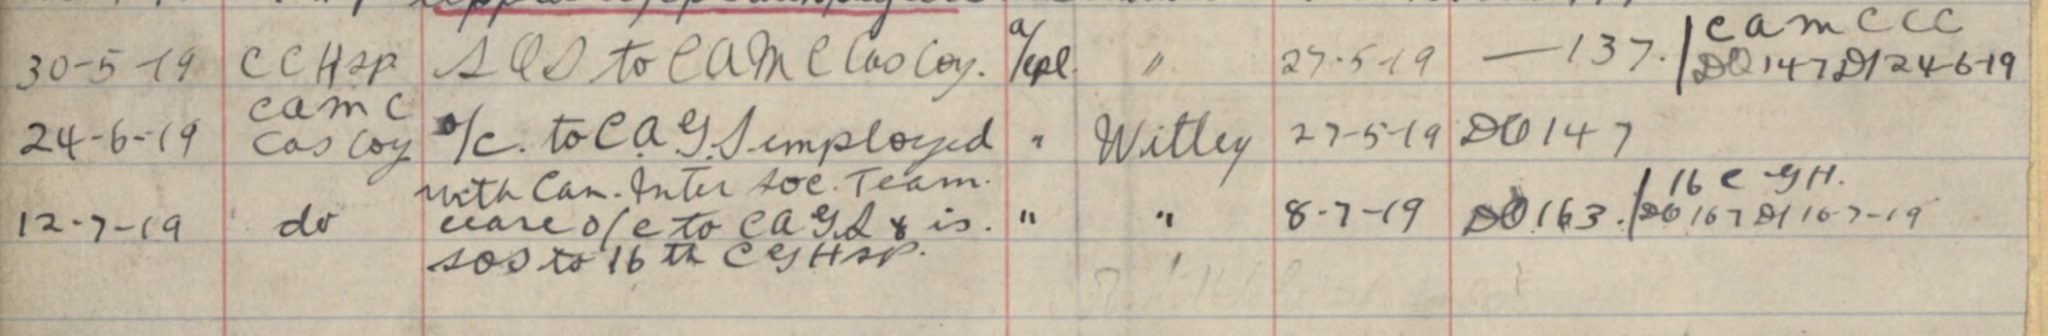 30-5-19 CCHsp SOS to CAMC Cas Coy. a/cpl. " 27-5-19 —137. / CAMCCC
DO 147 D/ 24-6-19
24-6-19 CAMC Cas Coy o/c. to C.A.G.S. employed " Witley 27-5-19 DO 147
with Can. Inter Soc. Team.
12-7-19 do cease o/c to CAGS & is. " " 8-7-19 DO 163. / 16 C GH.
DO 167 D/ 16-7-19
SOS to 16th CGHsp.